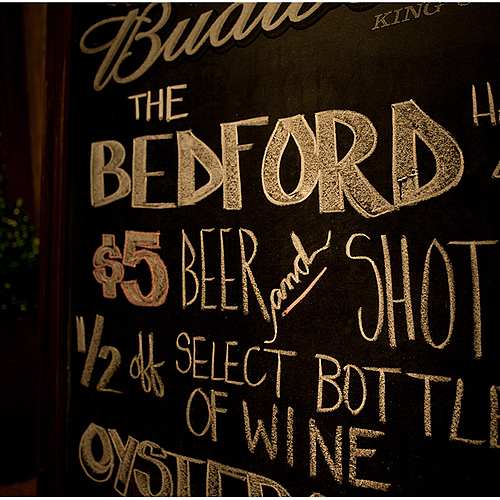 KING
THE
BEDFORD
$5 BEER and SHOT
1/2 off SELECT BOTTLE
OF WINE